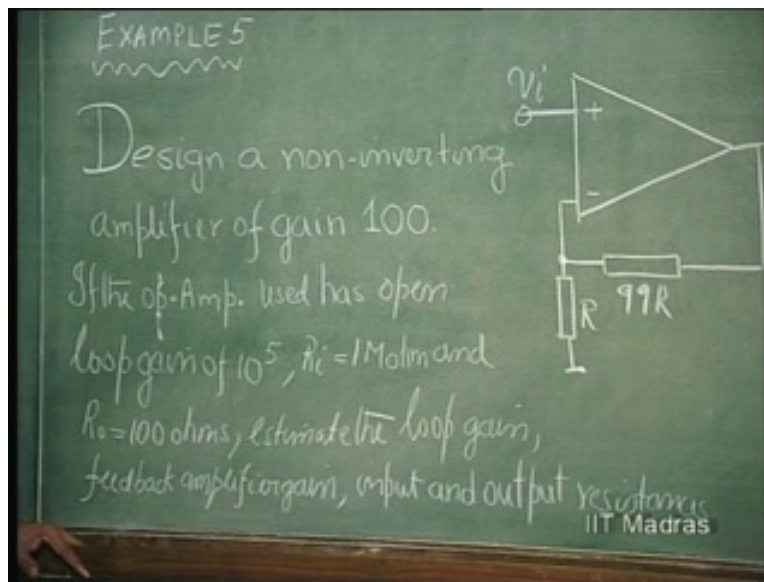 EXAMPLE 5
Design a non-inverting
amplifier of gain 100.
If the Op.Amp. used has open
loop gain of 10⁵, Ri = 1 Mohm and
Ro = 100 ohms, estimate the loop gain,
feedback amplifier gain, input and output resistances
Vi
+
-
R
99R
IIT Madras